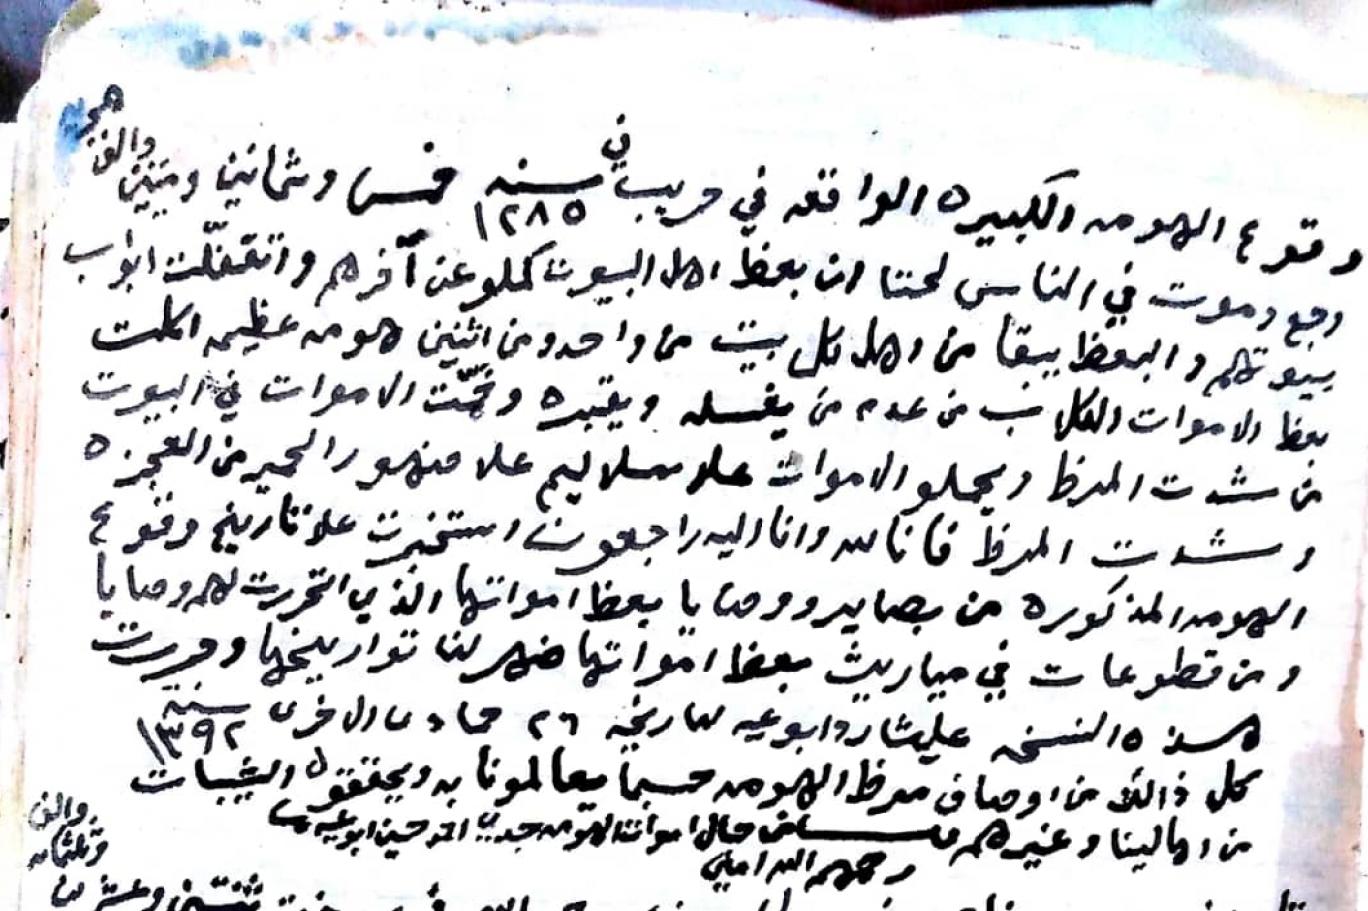 وقوع الهومه الكبيره الواقعه في حريب في سنه ١٢٨٥ خمس وثمانين وميتين والف هجريه
وجع وموت في الناس لحتا ان بعظ اهل البيوت كملو عن آخرهم واتقفلت ابواب
بيوتهم والبعظ يبقا من اهل كل بيت من واحد ومن اثنين هومه عظيمه اكلت
بعظ الاموات الكلاب من عدم من يغسله ويقبره وخمّت الاموات في البيوت
من شدت المرظ ويحملو الاموات علا سلاليم علا منهور الحمير من العجزه
وشدت المرظ فانا لله وانا اليه راجعون استخبرت علا تاريخ وقوع
الهومه المذكوره من بصاير ووصايا بعظ امواتها الذي اتحررت لهم وصايا
ومن قطوعات في مياريث بعظ امواتها ضهر لنا تواريخها وحررت
هذه النسخه علي ابوعيه تاريخه ٢٦ جمادى الاخرى سنه ١٣٩٢
كل ذالك من اوصاف مرظ الهومه حسبما يعالمونا به ويحققو الشيبات
من اهالينا وغيرهم من حال اموات الهومه جدي احمد حسين ابوعيه
رحمهم الله امين
والف
وثلثمائه